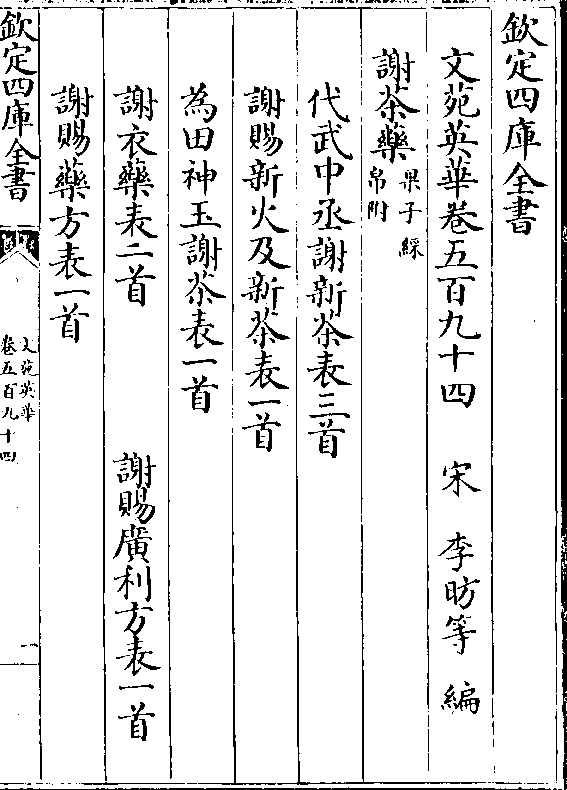 欽定四庫全書
文苑英華卷五百九十四 宋 李昉等 編
謝茶藥果子綵帛附
代武中丞謝新茶表三首
謝賜新火及新茶表一首
為田神玉謝茶表一首
謝衣藥表二首 謝賜廣利方表一首
謝賜藥方表一首
欽定四庫全書
文苑英華
卷五百九十四
一